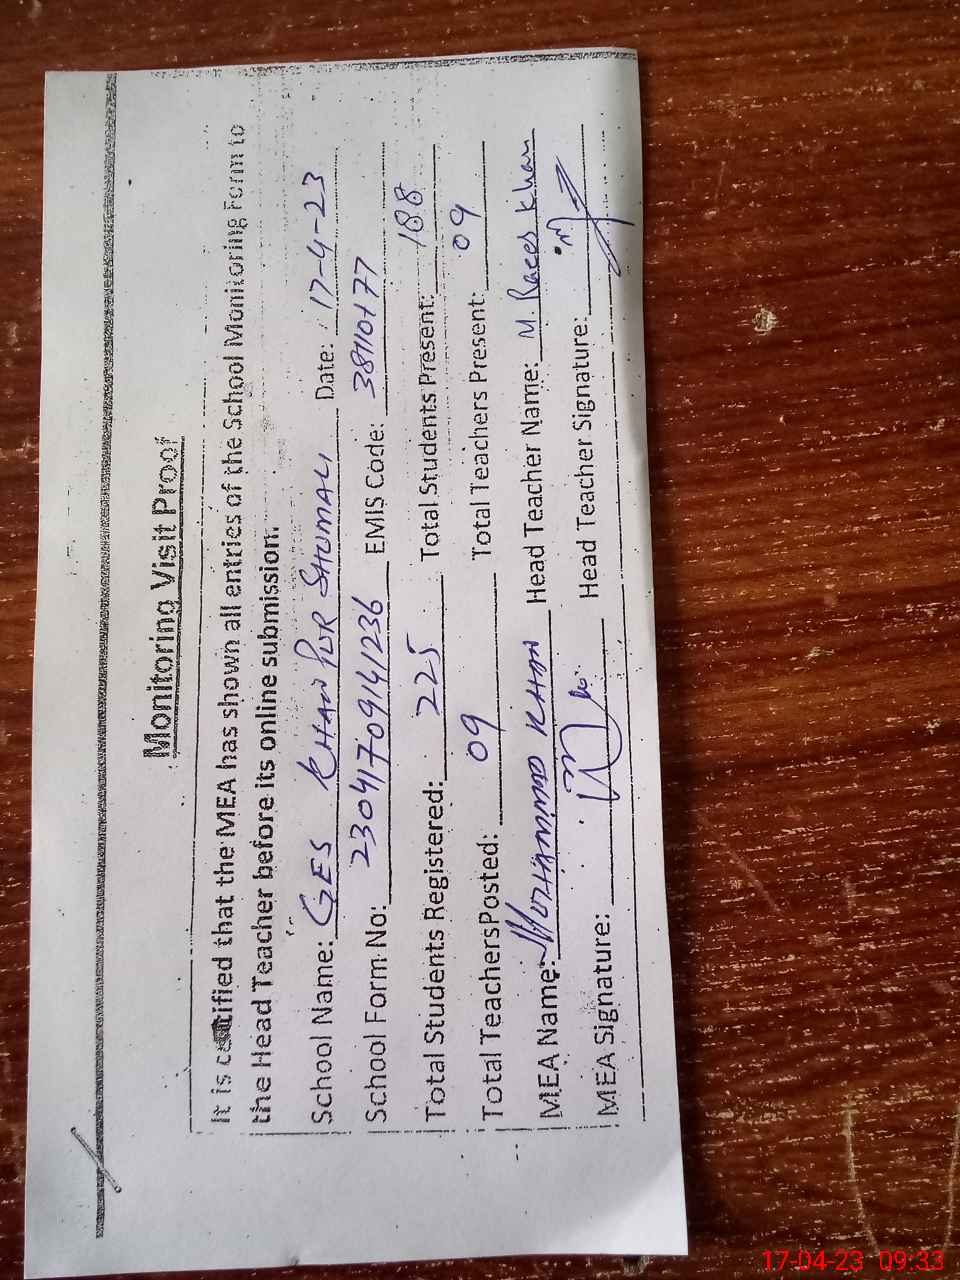 Monitoring Visit Proof
It is certified that the MEA has shown all entries of the School Monitoring Form to
the Head Teacher before its online submission.
School Name: GES KHANPUR SHUMALI Date: 17-4-23
School Form No: 23041709141236 EMIS Code: 38110177
Total Students Registered: 225 Total Students Present: 188
Total Teachers Posted: 09 Total Teachers Present: 09
MEA Name: MUHAMMAD KHAN Head Teacher Name: M. Raees Khan
MEA Signature: Head Teacher Signature:
17-04-23 09:33